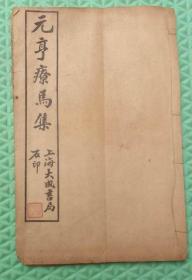 元亨療馬集
上海大成書局
石印